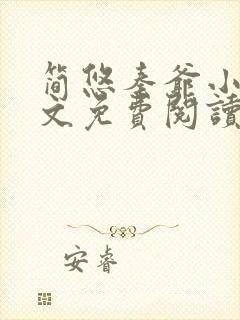 简悠秦爺小
文免費閱讀
安睿